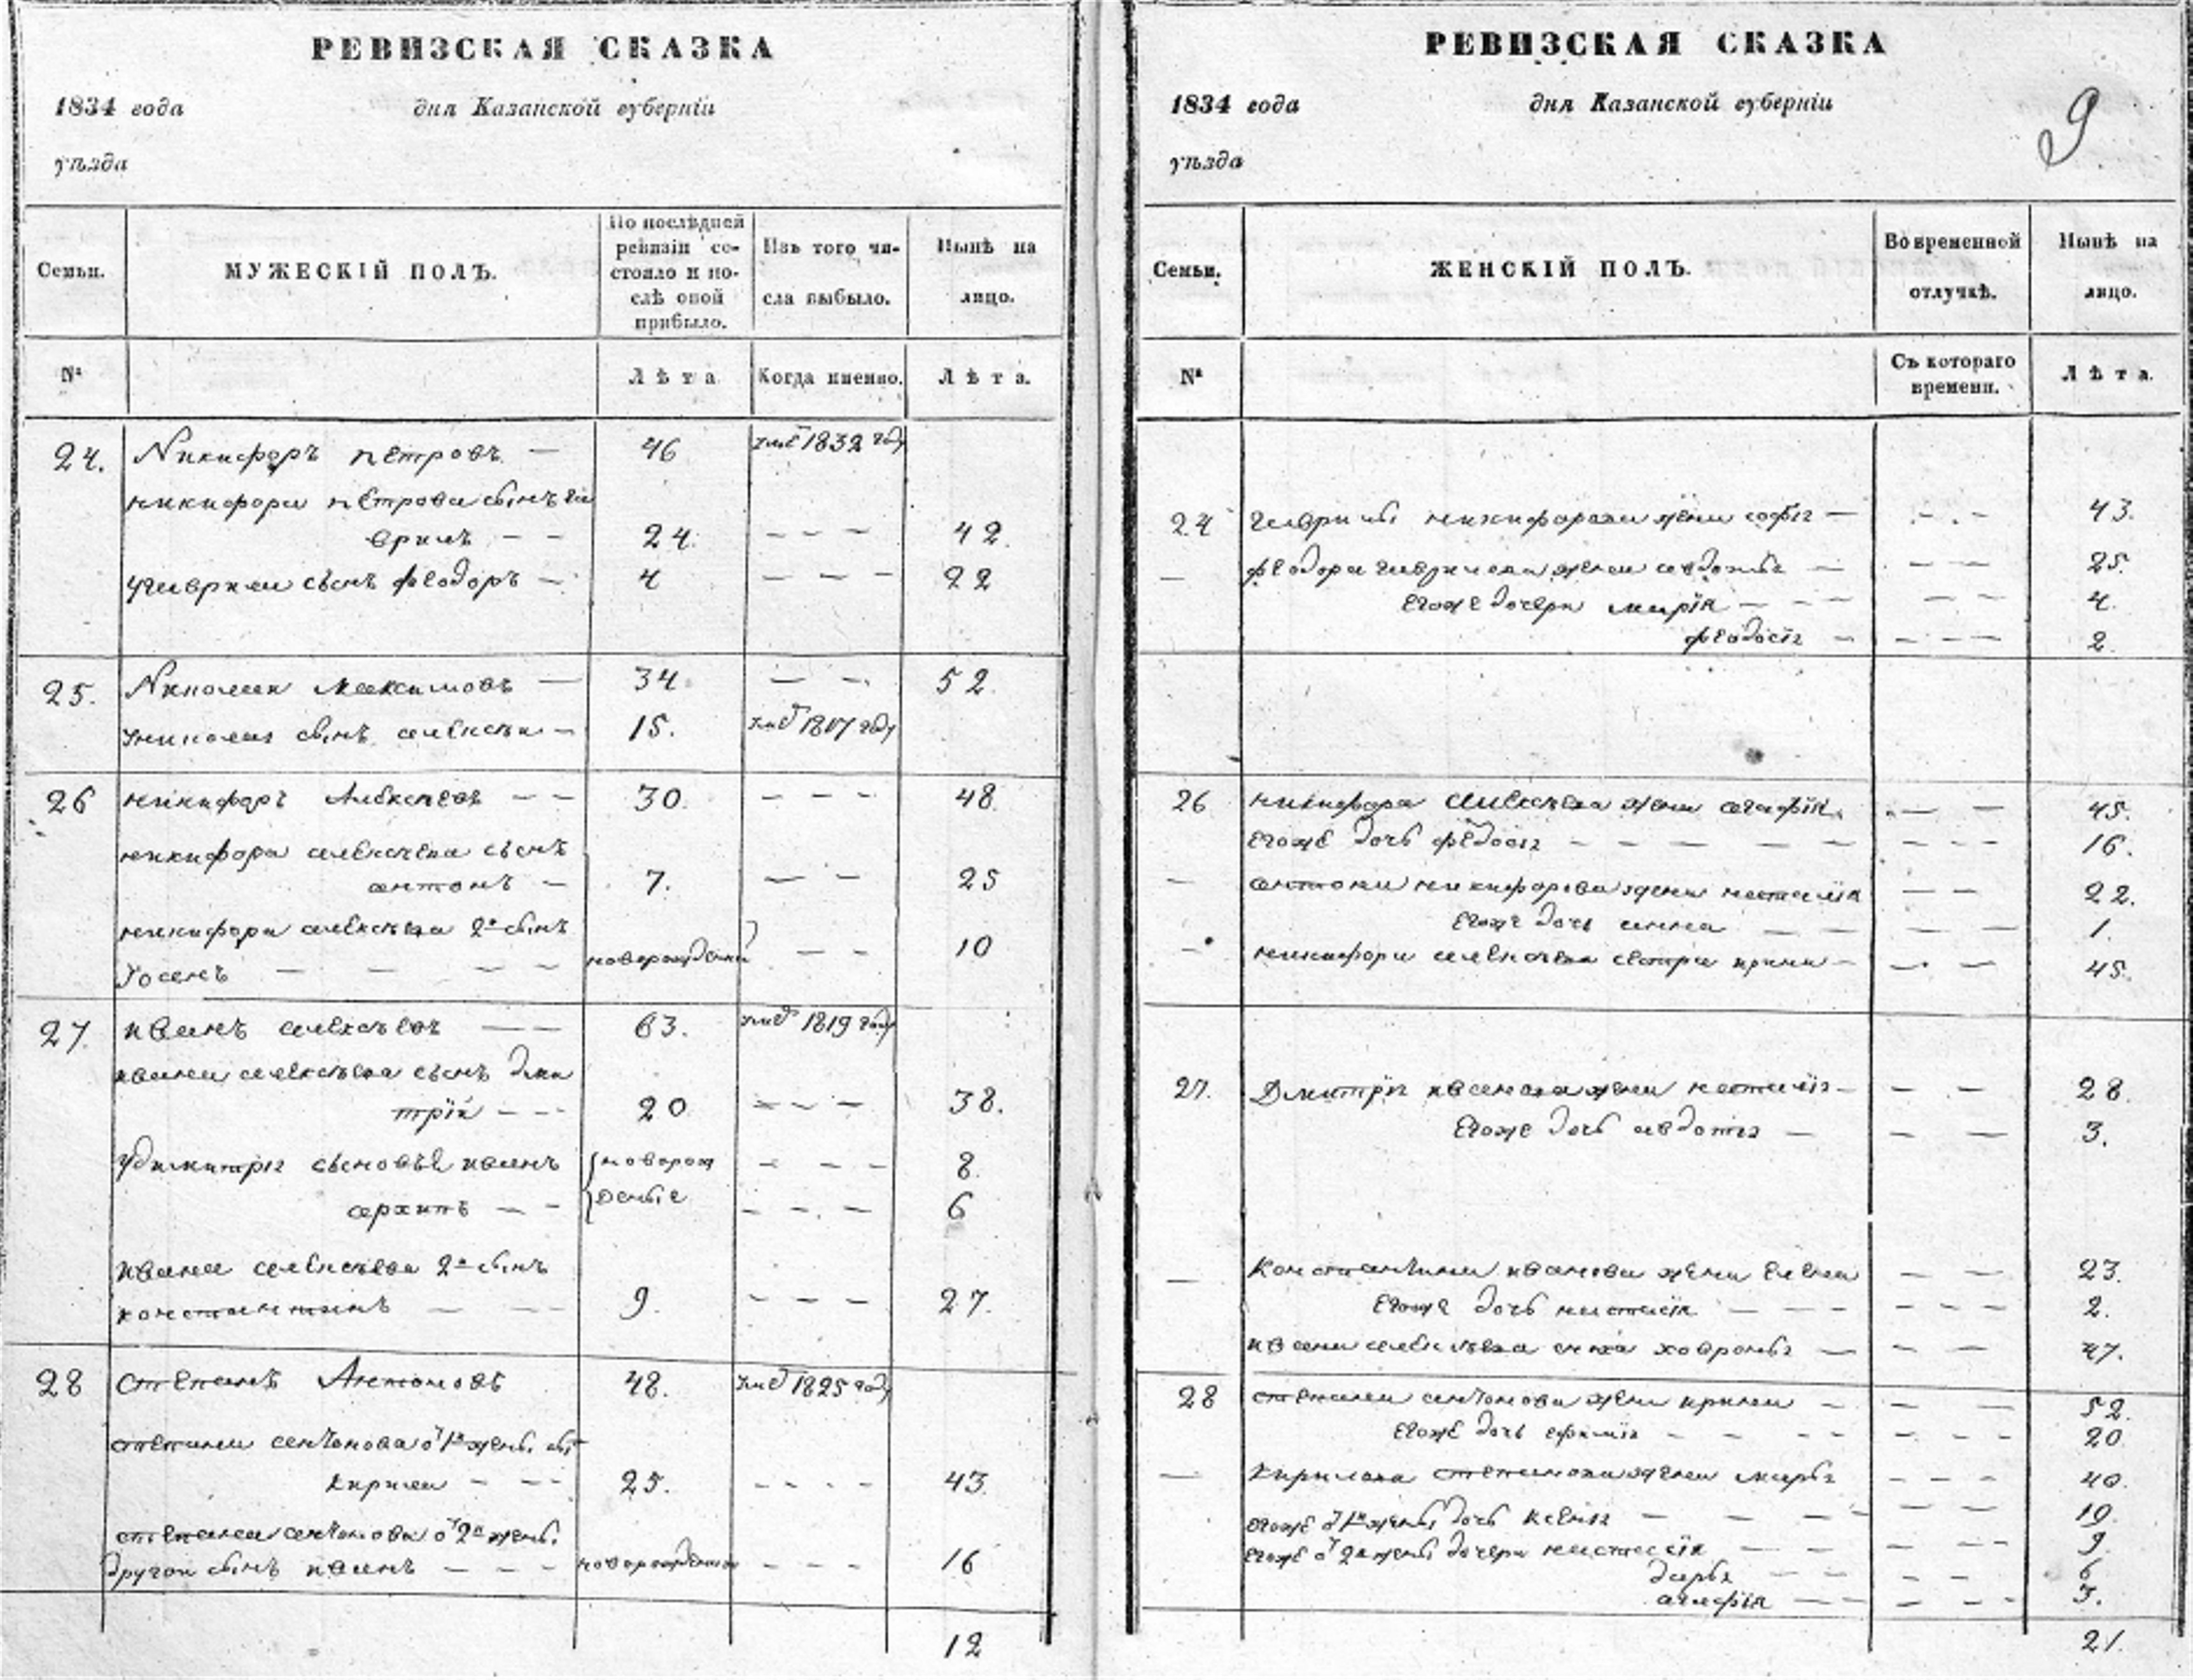 РЕВИЗСКАЯ СКАЗКА
1834 года дня Казанской губерніи
уѣзда
Семьи. МУЖЕСКІЙ ПОЛЪ. По послѣдней ревизіи состояло и послѣ оной прибыло. Изъ того числа выбыло. Нынѣ на лицо.
№ Лѣта Когда именно. Лѣта.
24. Никифоръ петровъ — 46 умѣ 1832 году
никифора петрова сынъ га
врилъ — — 24. — — — 42.
угаврилы сынъ феодоръ — 4 — — — 22
25. Николаи Максимовъ — 34 — — 52.
униколая сынъ алексѣи — 15. 18 году
26 никифоръ Алексѣевъ — — 30. — — — 48.
никифора алексѣева сынъ
антонъ — 7. — — 25
никифора алексѣева 2й сынъ
— — — — новорожденъ — — 10
27. иванъ алексѣевъ — — 63. умѣ 1819 году
ивана алексѣева сынъ дми
трій — — 20 — — — 38.
удимитрія сыновье иванъ новорож — — — 8.
архипъ — — деныя — — — 6
ивана алексѣева 2й сынъ
константинъ — — — 9. — — — 27.
28 степанъ Антоновъ 48. умѣ 1825 году
степана антонова о 1й жены сы
кирила — — — 25. — — — — 43.
степана антонова о 2й жены
другои сынъ иванъ — — — новорожденъ — — — 16
12
РЕВИЗСКАЯ СКАЗКА
1834 года дня Казанской губерніи 9
уѣзда
Семьи. ЖЕНСКІЙ ПОЛЪ. Во временной отлучкѣ. Нынѣ на лицо.
№ Съ котораго времени. Лѣта.
24 гаврилы никифорова жена софья — — — — 43.
— феодора гаврилова жена авдотья — — — — 25.
егоже дочери марія — — — — — — 4.
феодосія — — — — 2.
26 никифора алексѣева жена агафія. — — 45.
егоже дочь федосія — — — — — — — — 16.
— антона никифорова жена настасія — — 22.
егоже дочь анна — — — — 1.
— никифора алексѣева сестра ирина — — — 45.
27. Дмитрія иванова жена настасія — — — 28.
егоже дочь авдотья — — — 3.
— Константина иванова жена елена — — 23.
егоже дочь настасія — — — — — — 2.
ивана алексѣева сноха ховронья — — — 47.
28 степана антонова жена ирина — — — 52.
егоже дочь — — — — — — — 20
— кирилова степанова жена марья — — — 40.
егоже о 1й жены дочь ксенія — — — — — 19.
егоже о 2й жены дочери настасія — — — — — 9.
дарья — — — — 6
агафія — — — — — 3.
21.